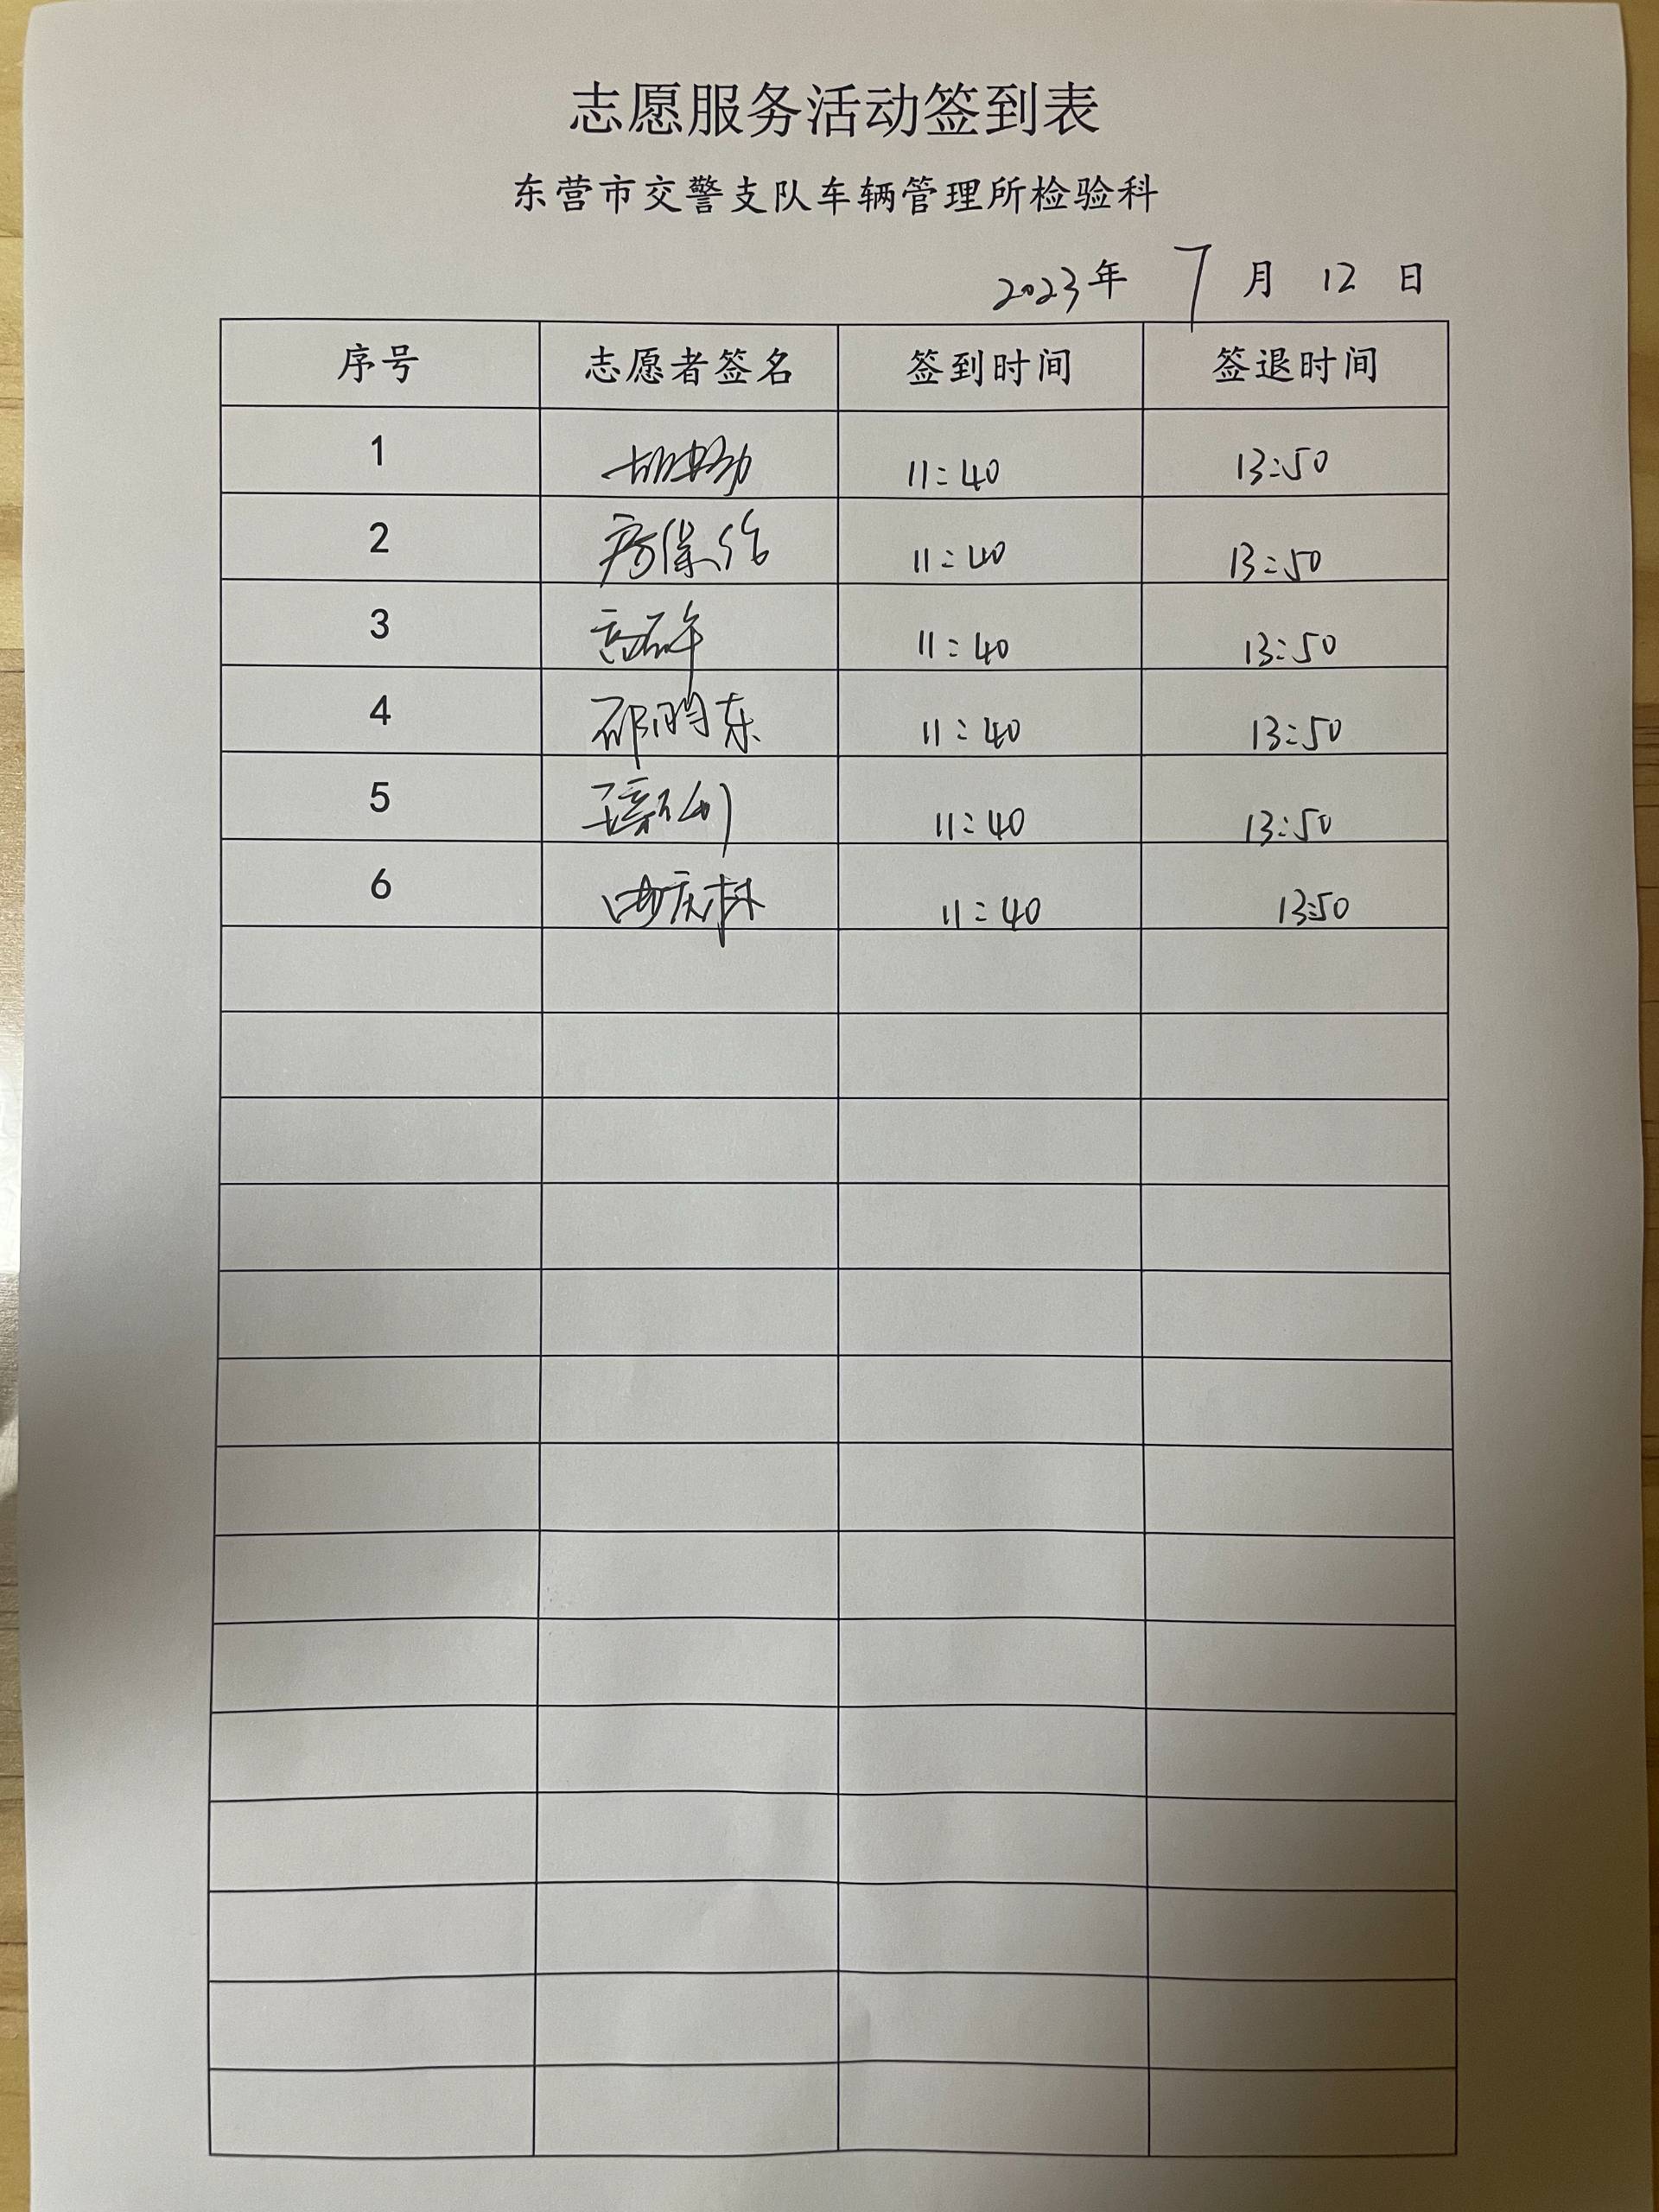 志愿服务活动签到表
东营市交警支队车辆管理所检验科
2023年 7 月 12 日
序号 志愿者签名 签到时间 签退时间
1 11:40 13:50
2 11:40 13:50
3 11:40 13:50
4 邵明东 11:40 13:50
5 11:40 13:50
6 庆林 11:40 13:50